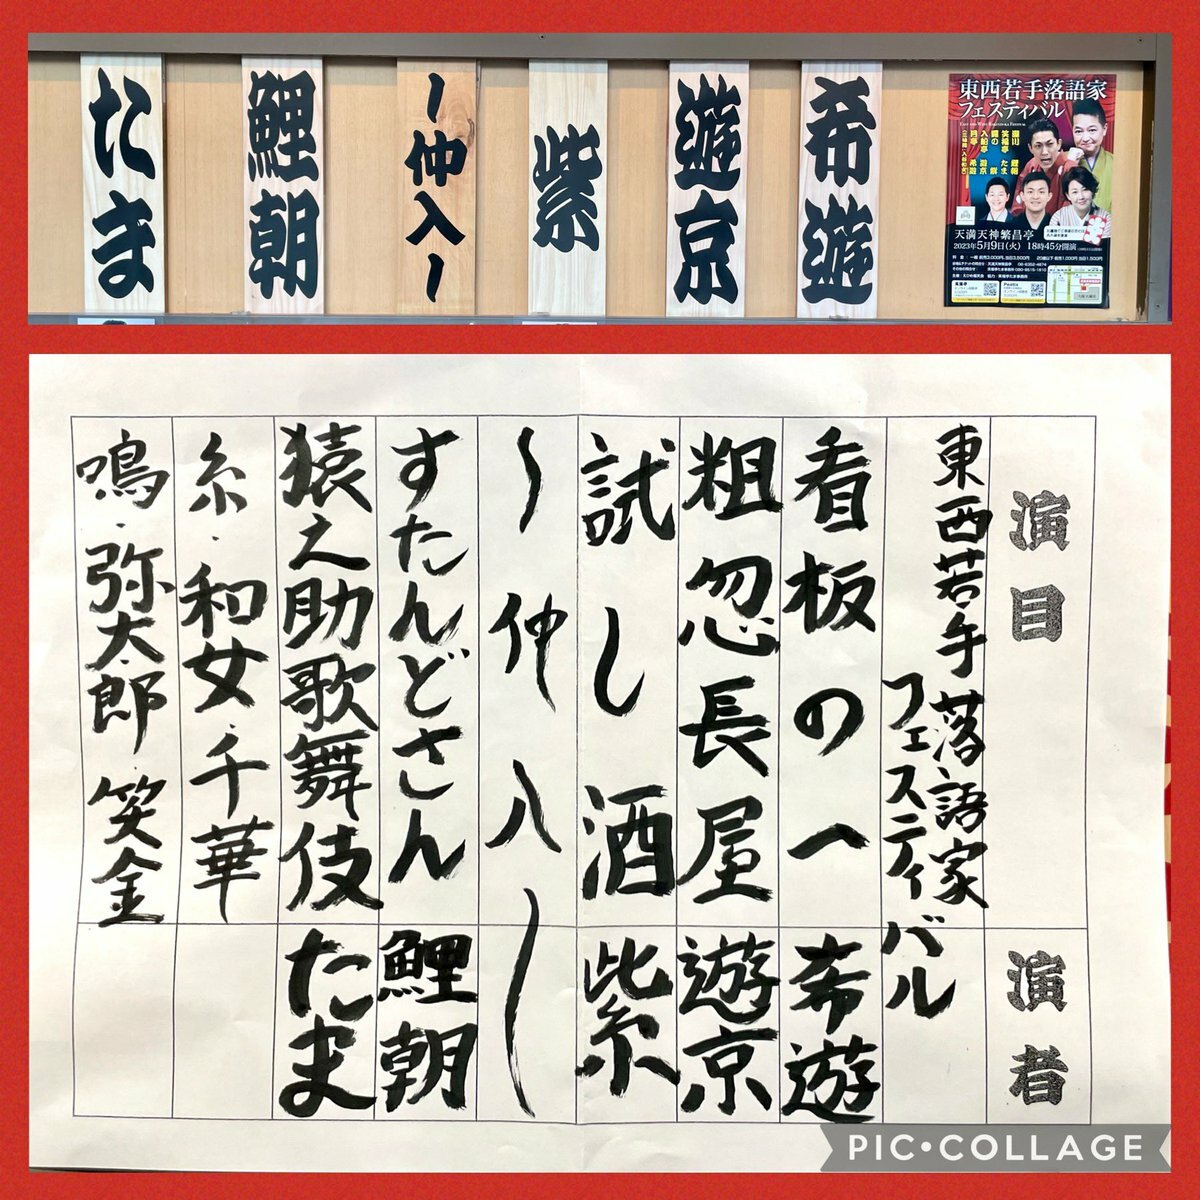 東西若手落語家
フェスティバル
瀧川 鯉朝
笑福亭 たま
露の 紫
入船亭 遊京
月亭 希遊
天満天神繁昌亭
2023年5月9日(火) 18時45分開演
希遊
遊京
紫
〜仲入〜
鯉朝
たま
演目 演者
東西若手落語家
フェスティバル
看板の一 希遊
粗忽長屋 遊京
試し酒 紫
〜仲入〜
すたんどさん 鯉朝
猿之助歌舞伎 たま
糸・和女・千華
鳴・弥太郎・笑金
PIC•COLLAGE